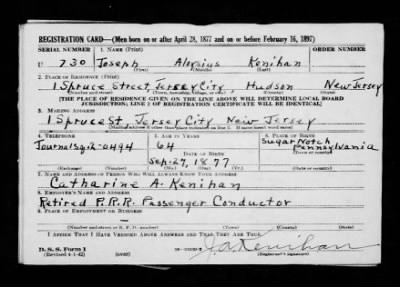 REGISTRATION CARD—(Men born on or after April 28, 1877 and on or before February 16, 1897)
SERIAL NUMBER 1. NAME (Print) ORDER NUMBER
U 730 Joseph Aloysius Kenihan
(First) (Middle) (Last)
2. PLACE OF RESIDENCE (Print)
1 Spruce Street, Jersey City, Hudson New Jersey
(Number and street) (Town, township, village, or city) (County) (State)
[THE PLACE OF RESIDENCE GIVEN ON THE LINE ABOVE WILL DETERMINE LOCAL BOARD
JURISDICTION; LINE 2 OF REGISTRATION CERTIFICATE WILL BE IDENTICAL]
3. MAILING ADDRESS
1 Spruce St, Jersey City New Jersey
(Mailing address if other than place indicated on line 2. If same insert word same)
4. TELEPHONE 5. AGE IN YEARS 6. PLACE OF BIRTH
Journel Sq-2-0494 64 Sugar Notch
DATE OF BIRTH (Town or county)
Sep-27, 1877 Pennsylvania
(Exchange) (Number) (Mo.) (Day) (Yr.) (State or country)
7. NAME AND ADDRESS OF PERSON WHO WILL ALWAYS KNOW YOUR ADDRESS
Catharine A. Kenihan
8. EMPLOYER'S NAME AND ADDRESS
Retired P.R.R. Passenger Conductor
9. PLACE OF EMPLOYMENT OR BUSINESS
(Number and street or R. F. D. number) (Town) (County) (State)
I AFFIRM THAT I HAVE VERIFIED ABOVE ANSWERS AND THAT THEY ARE TRUE.
D. S. S. Form 1
(Revised 4-1-42) (over) J.A. Kenihan
(Registrant's signature)